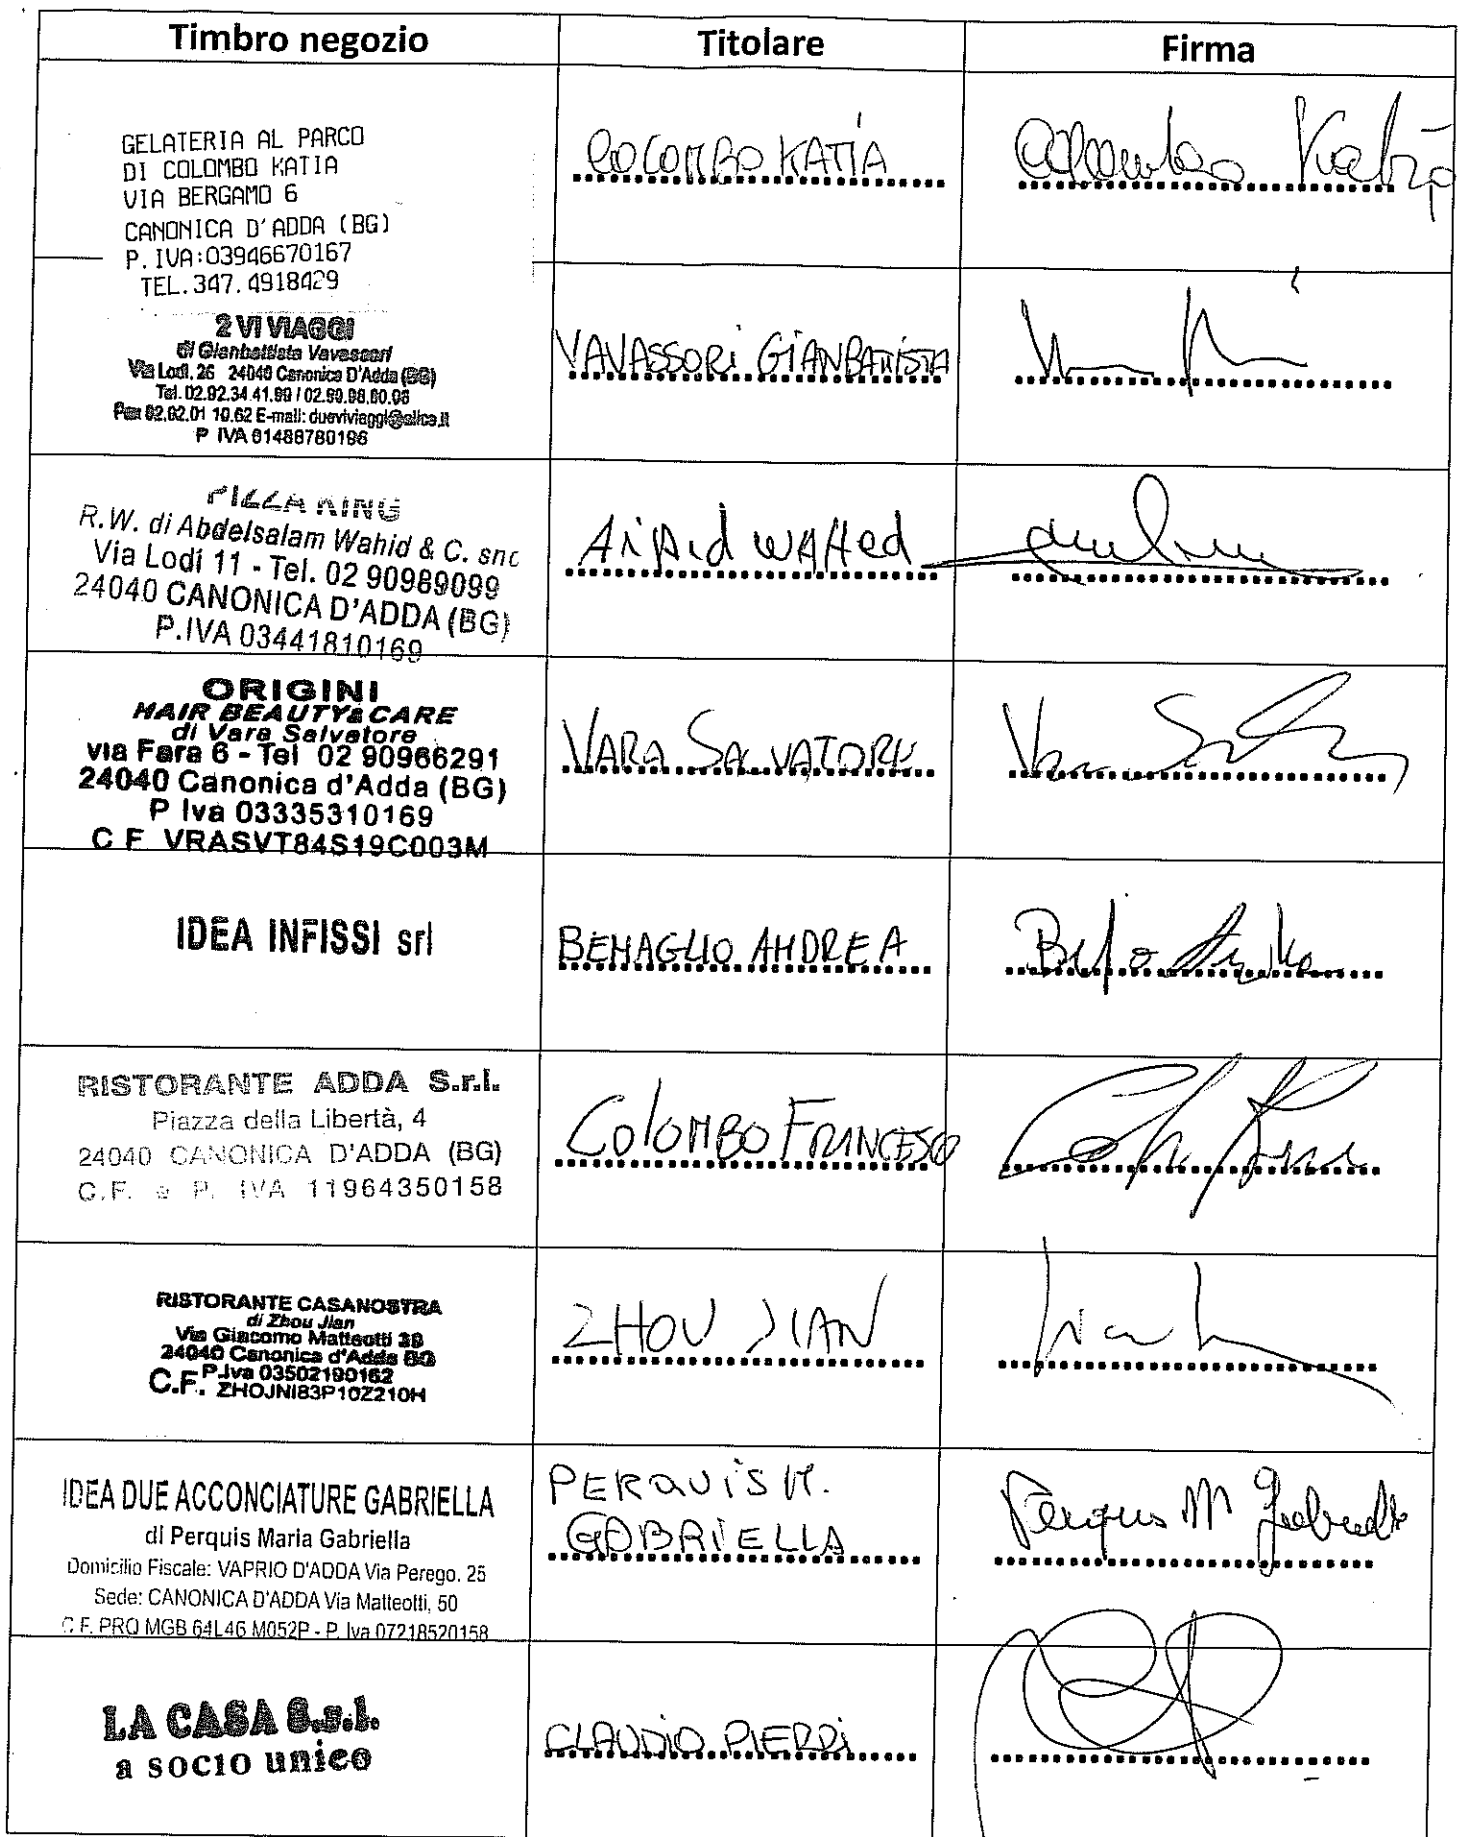 Timbro negozio
Titolare
Firma
GELATERIA AL PARCO
DI COLOMBO KATIA
VIA BERGAMO 6
CANONICA D'ADDA (BG)
P. IVA:03946670167
TEL. 347. 4918429
COLOMBO KATIA
Colombo Katia
2 VI VIAGGI
di Gianbattista Vavassori
Via Lodi, 26 24040 Canonica D'Adda (BG)
Tel. 02.92.34.41.99 /
E-mail: dueviviaggi@alice.it
P IVA
VAVASSORI GIANBATTISTA
PIZZA KING
R.W. di Abdelsalam Wahid & C. snc
Via Lodi 11 - Tel. 02 90989099
24040 CANONICA D'ADDA (BG)
P.IVA 03441810169
ORIGINI
HAIR BEAUTY & CARE
di Vara Salvatore
via Fara 6 - Tel 02 90966291
24040 Canonica d'Adda (BG)
P Iva 03335310169
C F VRASVT84S19C003M
VARA SALVATORE
IDEA INFISSI srl
BENAGLIO ANDREA
RISTORANTE ADDA S.r.l.
Piazza della Libertà, 4
24040 CANONICA D'ADDA (BG)
C.F. e P. IVA 11964350158
COLOMBO FRANCESCO
RISTORANTE CASANOSTRA
di Zhou Jian
Via Giacomo Matteotti 38
24040 Canonica d'Adda BG
P.Iva 03502190162
C.F. ZHOJNI83P10Z210H
ZHOU JIAN
IDEA DUE ACCONCIATURE GABRIELLA
di Perquis Maria Gabriella
Domicilio Fiscale: VAPRIO D'ADDA Via Perego, 25
Sede: CANONICA D'ADDA Via Matteotti, 50
C.F. PRQ MGB 64L46 M052P - P. Iva 07218520158
PERQUIS M.
GABRIELLA
Perquis M Gabriella
LA CASA S.r.l.
a socio unico
CLAUDIO PIERDI